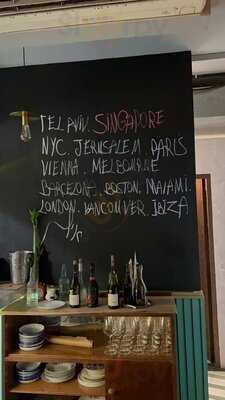 TEL AVIV. SINGAPORE
NYC. JERUSALEM PARIS
VIENNA. MELBOURNE
BARCELONA. BOSTON. MIAMI.
LONDON. VANCOUVER. IBIZA